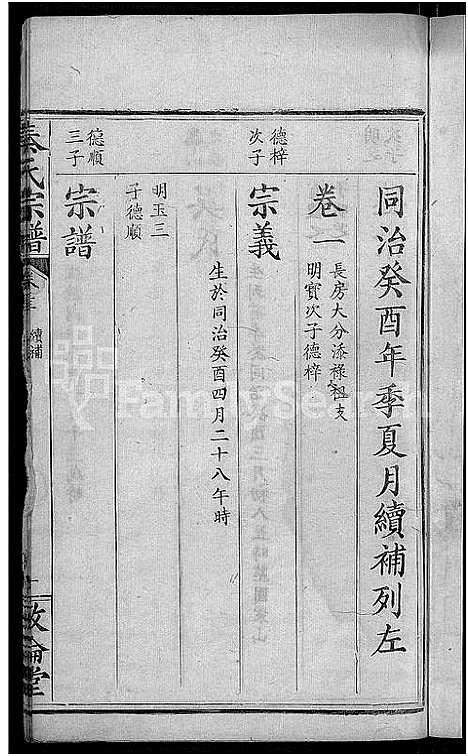 同治癸酉年季夏月續補列左
卷一
長房大分添祿祖支
明寳次子德梓
德梓
次子
宗義
生於同治癸酉四月二十八午時
明玉三
子德順
德順
三子
宗譜
秦氏宗譜
續補
敦倫堂
FamilySearch